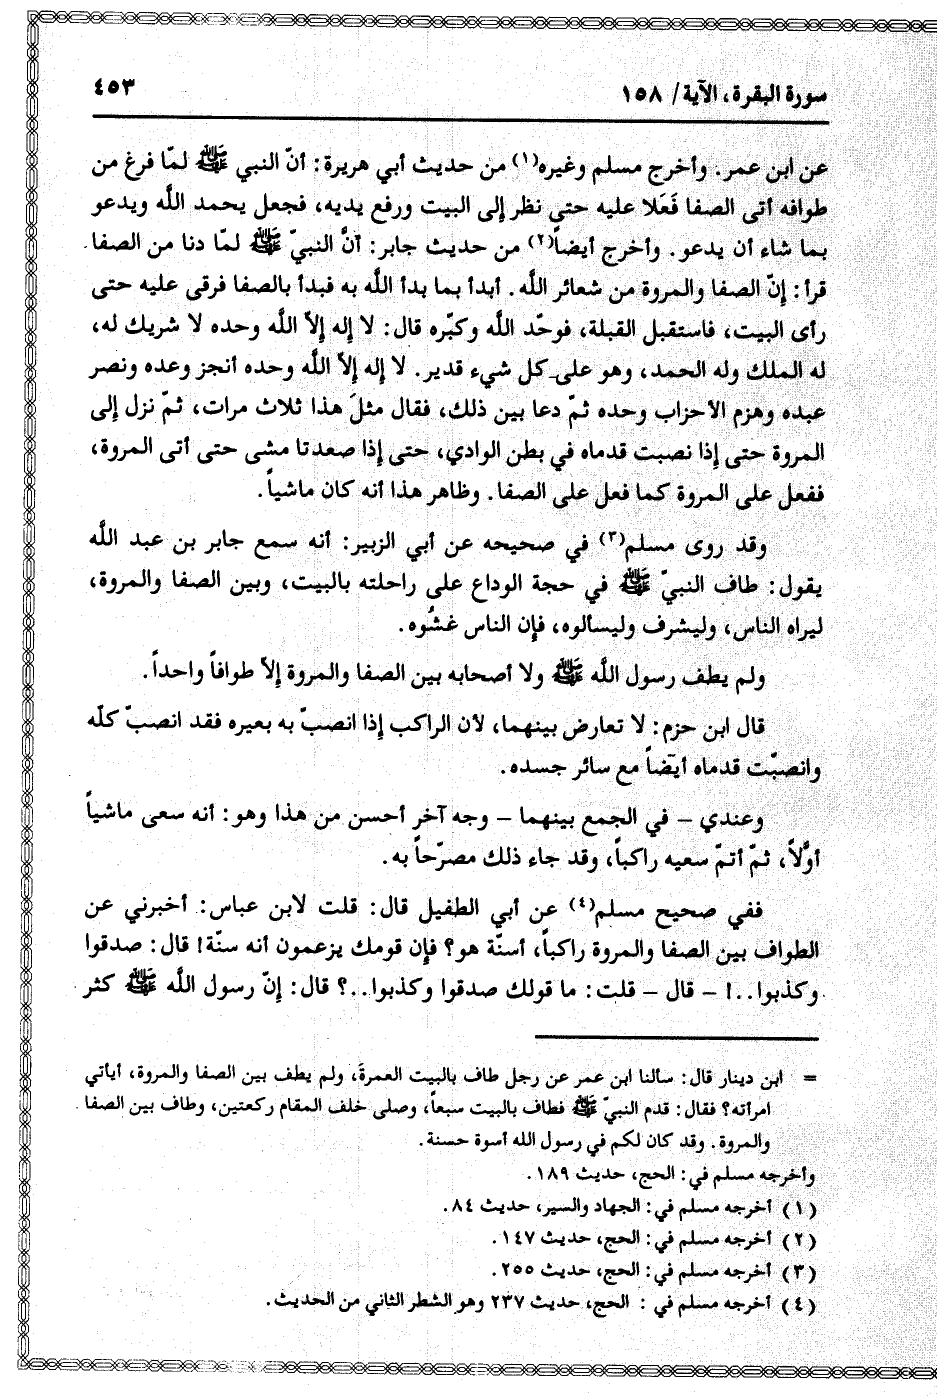 سورة البقرة، الآية/ ١٥٨
٤٥٣
عن ابن عمر. وأخرج مسلم وغيره(١) من حديث أبي هريرة: أنّ النبي ﷺ لمّا فرغ من
طوافه أتى الصفا فَعَلا عليه حتى نظر إلى البيت ورفع يديه، فجعل يحمد اللَّه ويدعو
بما شاء أن يدعو. وأخرج أيضاً(٢) من حديث جابر: أنَّ النبيّ ﷺ لمّا دنا من الصفا
قرأ: إنّ الصفا والمروة من شعائر اللَّه. أبدأ بما بدأ اللَّه به فبدأ بالصفا فرقى عليه حتى
رأى البيت، فاستقبل القبلة، فوحّد اللَّه وكبّره قال: لا إله إلاّ اللَّه وحده لا شريك له،
له الملك وله الحمد، وهو على كل شيء قدير. لا إله إلاّ اللَّه وحده أنجز وعده ونصر
عبده وهزم الأحزاب وحده ثمّ دعا بين ذلك، فقال مثلَ هذا ثلاث مرات، ثمّ نزل إلى
المروة حتى إذا نصبت قدماه في بطن الوادي، حتى إذا صعدتا مشى حتى أتى المروة،
ففعل على المروة كما فعل على الصفا. وظاهر هذا أنه كان ماشياً.
وقد روى مسلم(٣) في صحيحه عن أبي الزبير: أنه سمع جابر بن عبد اللَّه
يقول: طاف النبيّ ﷺ في حجة الوداع على راحلته بالبيت، وبين الصفا والمروة،
ليراه الناس، وليشرف وليسألوه، فإن الناس غشُوه.
ولم يطف رسول اللَّه ﷺ ولا أصحابه بين الصفا والمروة إلاّ طوافاً واحداً.
قال ابن حزم: لا تعارض بينهما، لأن الراكب إذا انصبّ به بعيره فقد انصبّ كلّه
وانصبّت قدماه أيضاً مع سائر جسده.
وعندي – في الجمع بينهما – وجه آخر أحسن من هذا وهو: أنه سعى ماشياً
أوّلاً، ثمّ أتمّ سعيه راكباً، وقد جاء ذلك مصرّحاً به.
ففي صحيح مسلم(٤) عن أبي الطفيل قال: قلت لابن عباس: أخبرني عن
الطواف بين الصفا والمروة راكباً، أسنّة هو؟ فإن قومك يزعمون أنه سنّة! قال: صدقوا
وكذبوا..! – قال – قلت: ما قولك صدقوا وكذبوا..؟ قال: إنّ رسول اللَّه ﷺ كثر
= ابن دينار قال: سألنا ابن عمر عن رجل طاف بالبيت العمرة، ولم يطف بين الصفا والمروة، أيأتي
امرأته؟ فقال: قدم النبيّ ﷺ فطاف بالبيت سبعاً، وصلى خلف المقام ركعتين، وطاف بين الصفا
والمروة. وقد كان لكم في رسول الله أسوة حسنة.
وأخرجه مسلم في: الحج، حديث ١٨٩.
(١) أخرجه مسلم في: الجهاد والسير، حديث ٨٤.
(٢) أخرجه مسلم في: الحج، حديث ١٤٧.
(٣) أخرجه مسلم في: الحج، حديث ٢٥٥.
(٤) أخرجه مسلم في : الحج، حديث ٢٣٧ وهو الشطر الثاني من الحديث.